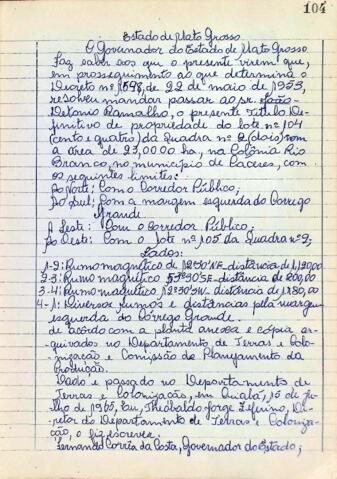 104
Estado de Mato Grosso
O Governador do Estado de Mato Grosso
Faz saber aos que o presente virem que,
em prosseguimento ao que determina o
Decreto nº 1698, de 22 de maio de 1953,
resolveu mandar passar ao sr. João
Antonio Ramalho, o presente Titulo De-
finitivo de propriedade do lote nº 104
(cento e quatro) da Quadra nº 2 (dois) com
a área de 23,0000 ha, na Colônia Rio
Branco, no município de Cáceres, com
os seguintes limites:
Ao Norte: Com o Corredor Público;
Ao Sul: Com a margem esquerda do Corrego
Grande.
A Leste: Com o Corredor Público;
Ao Oeste: Com o lote nº 105 da Quadra nº 2;
Lados:
1-2: Rumo magnético de NE distância de
2-3: Rumo magnético SE distância de 200,00
3-4: Rumo magnético SW distância de 1.280,00
4-1: Diversos rumos e distancias pela margem
esquerda do Córrego Grande.
de acordo com a planta anexa e cópia ar-
quivados no Departamento de Terras e Colo-
nização e Comissão de Planejamento da
Produção.
Dado e passado no Departamento de
Terras e Colonização, em Cuiabá, 15 de ju-
lho de 1965, Eu, Theobaldo Jorge Zeferino, Di-
retor do Departamento de Terras e Coloniza-
ção, o fiz escrever.
Fernando Corrêa da Costa, Governador do Estado;